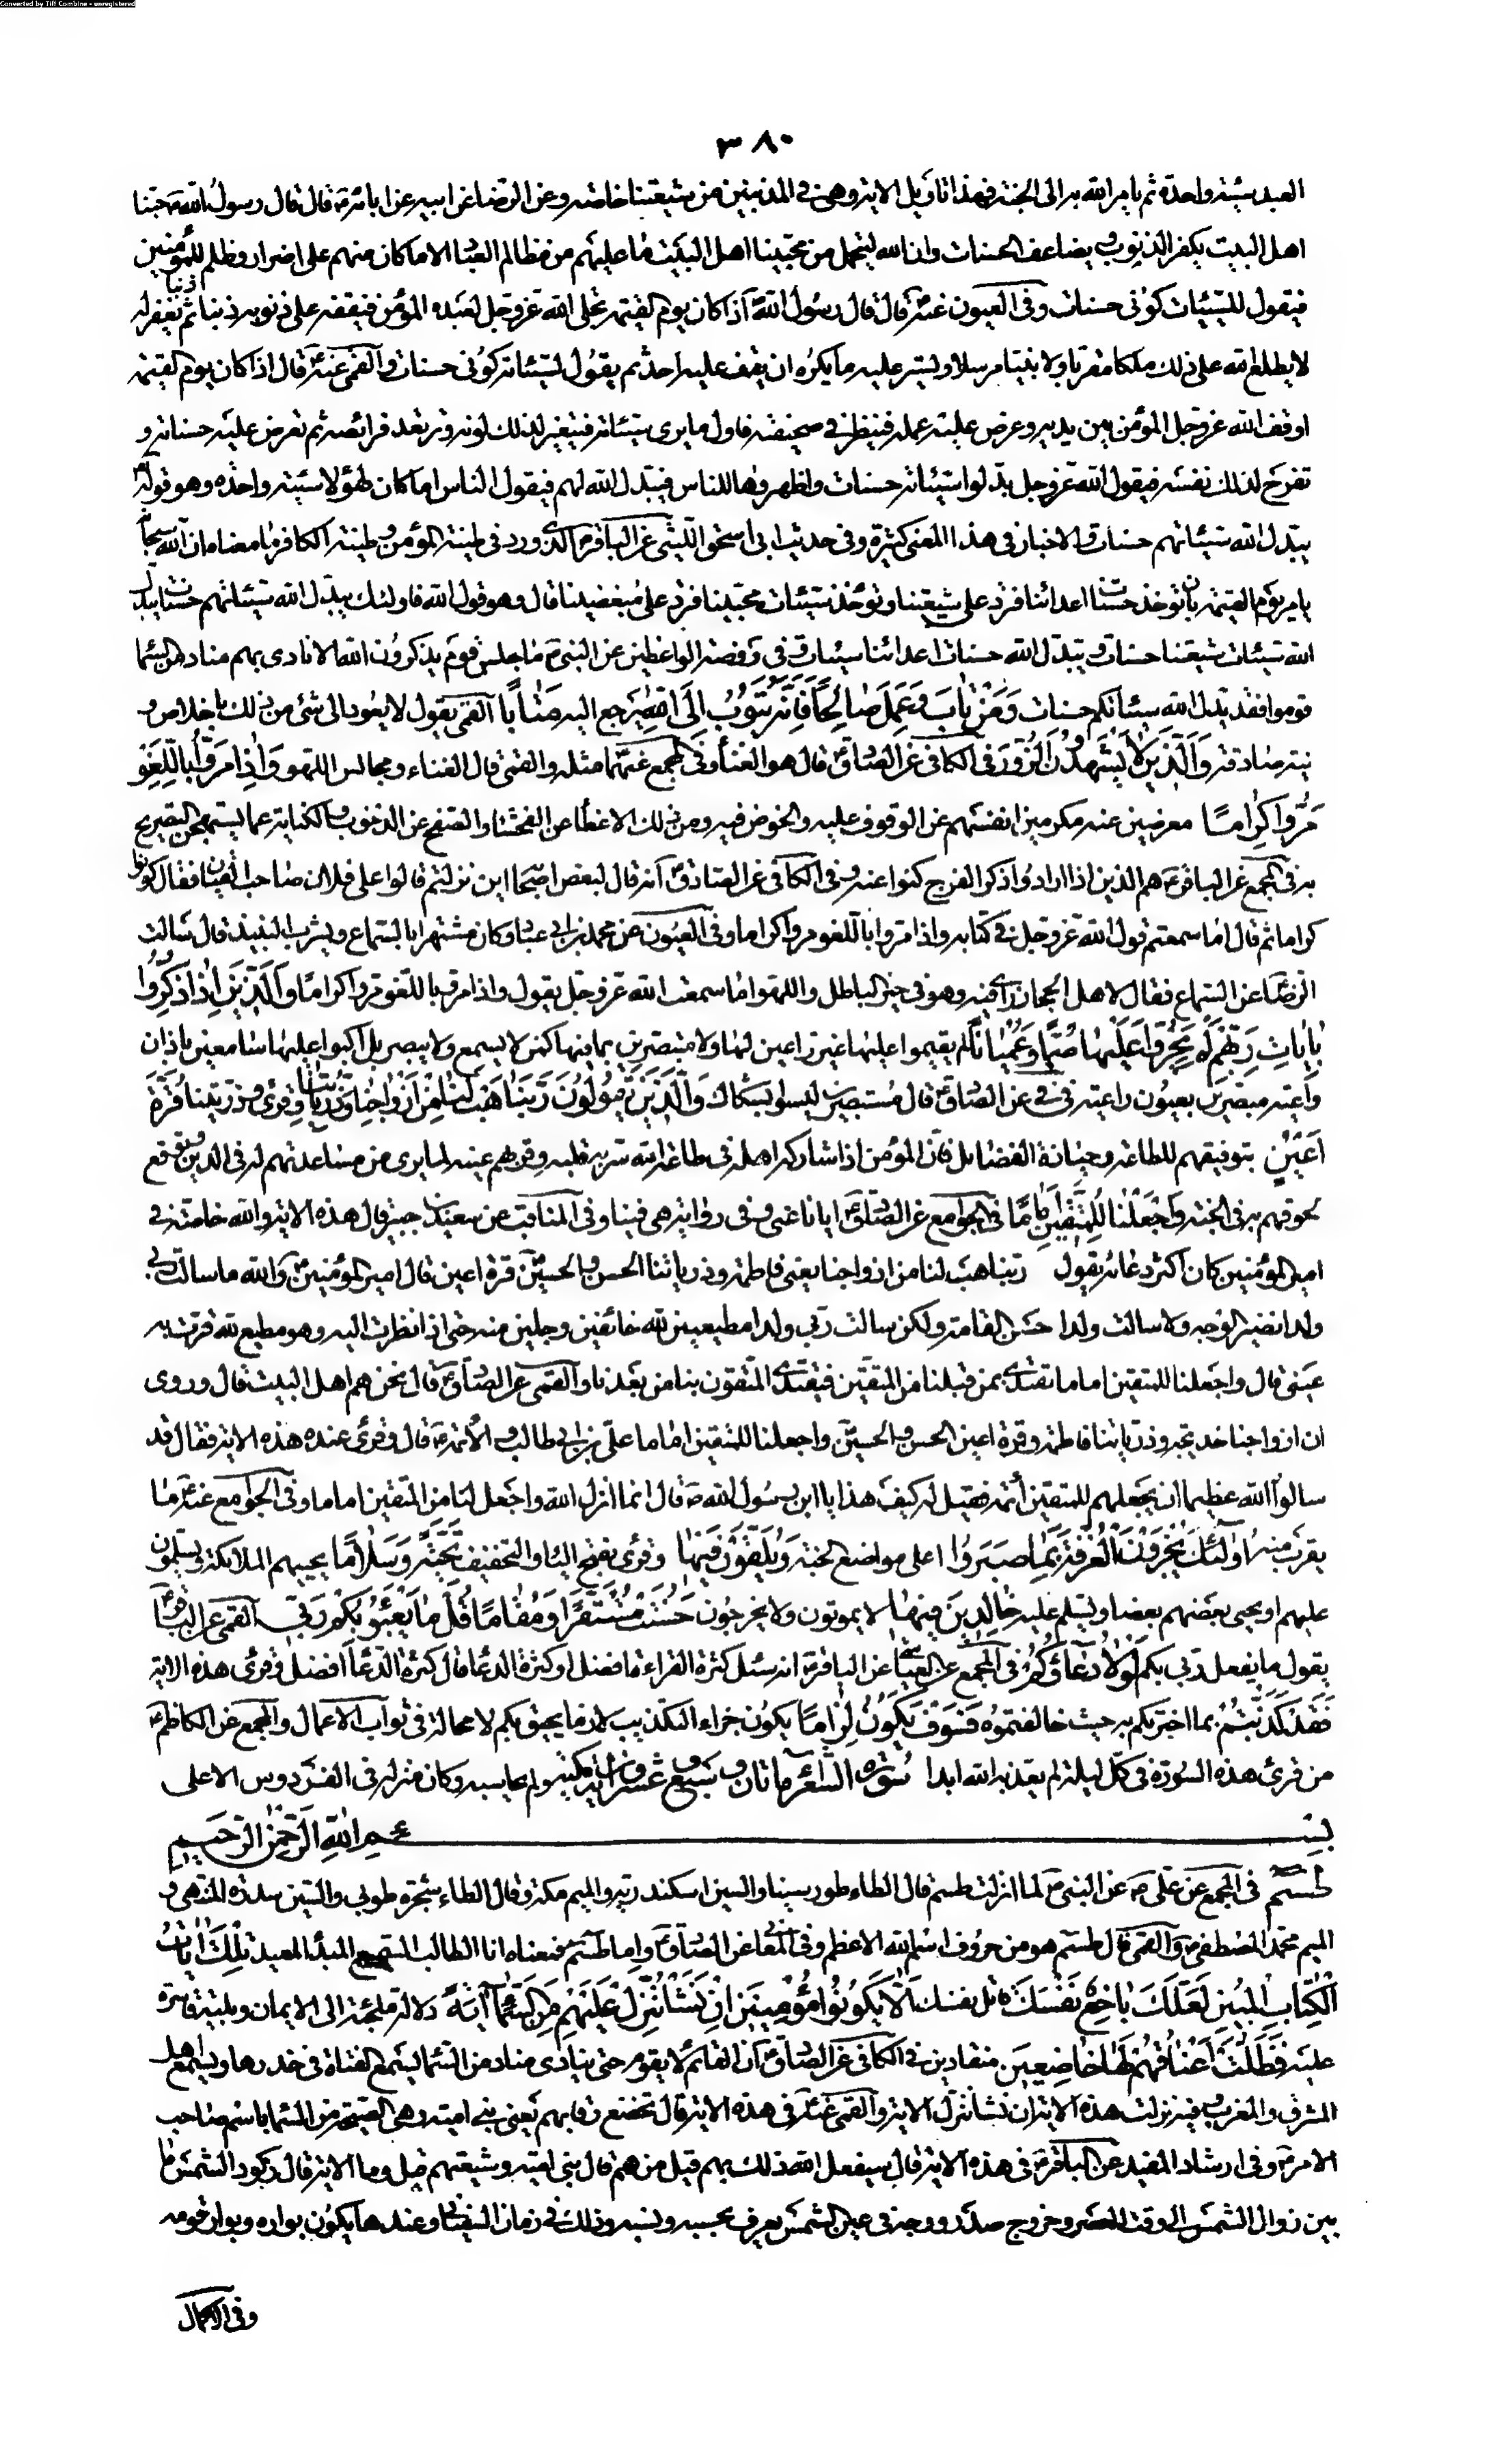 Converted by Tiff Combine - unregistered
٣٨٠
العبد سيئة واحدة ثم يامر الله به الى الجنة فهذا تاويل الاية وهى فى المذنبين من شيعتنا خاصة وعن الرضا عن ابيه عن ابائه ع قال قال رسول الله ص حبنا
اهل البيت يكفر الذنوب ويضاعف الحسنات وان الله ليتحمل من محبينا اهل البيت ما عليهم من مظالم العباد الا ما كان منهم على اضرار وظلم للمؤمنين
فيقول للسيئات كونى حسنات وفى العيون عنه ع قال قال رسول الله ص اذا كان يوم القيمة تجلى الله عز وجل لعبده المؤمن فيقفه على ذنوبه ذنبا ذنبا ثم يغفر له
لا يطلع الله على ذلك ملكا مقربا ولا نبيا مرسلا ويستر عليه ما يكره ان يقف عليه احد ثم يقول لسيئاته كونى حسنات والقمى عنه ع قال اذا كان يوم القيمة
اوقف الله عز وجل المؤمن بين يديه وعرض عليه عمله فينظر فى صحيفته فاول ما يرى سيئاته فيتغير لذلك لونه وترتعد فرائصه ثم تعرض عليه حسناته و
تفرح لذلك نفسه فيقول الله عز وجل بدلوا سيئاته حسنات واظهروها للناس فيبدل الله لهم فيقول الناس اما كان لهؤلاء سيئة واحدة وهو قوله
يبدل الله سيئاتهم حسنات والاخبار فى هذا المعنى كثيرة وفى حديث ابى اسحق الليثى عن الباقر ع الذى ورد فى طينة المؤمن وطينة الكافر ما معناه ان الله سبحانه
يامر يوم القيمة بان تؤخذ حسنات اعدائنا فترد على شيعتنا وتؤخذ سيئات محبينا فترد على مبغضينا قال وهو قول الله فاولئك يبدل الله سيئاتهم حسنات يبدل
الله سيئات شيعتنا حسنات ويبدل الله حسنات اعدائنا سيئات وفى روضة الواعظين عن النبى ص ما جلس قوم يذكرون الله الا نادى بهم مناد من السماء
قوموا فقد بدل الله سيئاتكم حسنات وَمَنْ تابَ وَعَمِلَ صالِحًا فَاِنَّهُ يَتُوبُ اِلَى اللهِ يرجع اليه مَتابًا القمى يقول لا يعود الى شئ من ذلك باخلاص و
نية صادقة وَالَّذينَ لا يَشْهَدُونَ الزُّورَ فى الكافى عن الصادق ع قال هو الغناء وفى المجمع عنهما مثله والقمى قال الغناء ومجالس اللهو وَاِذا مَرُّوا بِاللَّغْوِ
مَرُّوا كِرامًا معرضين عنه مكرمين انفسهم عن الوقوف عليه والخوض فيه ومن ذلك الاغضاء عن الفحشاء والصفح عن الذنوب والكناية عما يستهجن التصريح
به فى المجمع عن الباقر ع هم الذين اذا ارادوا ذكر الفرج كنوا عنه وفى الكافى عن الصادق ع انه قال لبعض اصحابه اين نزلتم قالوا على فلان صاحب القيان فقال كونوا
كراما ثم قال اما سمعتم قول الله عز وجل فى كتابه واذا مروا باللغو مروا كراما وفى العيون عن محمد بن ابى عباد وكان مشتهرا بالسماع وبشرب النبيذ قال سالت
الرضا ع عن السماع فقال لاهل الحجاز راى فيه وهو فى حيز الباطل واللهو اما سمعت الله عز وجل يقول واذا مروا باللغو مروا كراما وَالَّذينَ اِذا ذُكِّرُوا
بِاياتِ رَبِّهِمْ لَمْ يَخِرُّوا عَلَيْها صُمًّا وَعُمْيانًا لم يقيموا عليها غير واعين لها ولا متبصرين بما فيها كمن لا يسمع ولا يبصر بل اكبوا عليها سامعين باذان
واعية مبصرين بعيون راعية وفى فى عن الصادق ع قال مستبصرين ليسوا بشكاك وَالَّذينَ يَقُولُونَ رَبَّنا هَبْ لَنا مِنْ اَزْواجِنا وَذُرِّيّاتِنا وقرئ وذريتنا قُرَّةَ
اَعْيُنٍ بتوفيقهم للطاعة وحيازة الفضايل فان المؤمن اذا شاركه اهله فى طاعة الله سر به قلبه وقر بهم عينه لما يرى من مساعدتهم له فى الدين وتوقع
لحوقهم به فى الجنة وَاجْعَلْنا لِلْمُتَّقينَ اِمامًا فى الجوامع عن الصادق ع ايانا عنى وفى رواية هى فينا وفى المناقب عن سعيد بن جبير قال هذه الاية والله خاصة فى
امير المؤمنين كان اكثر دعائه يقول ربنا هب لنا من ازواجنا يعنى فاطمة وذرياتنا الحسن والحسين ع قرة اعين قال امير المؤمنين ع والله ما سالت ربى
ولدا نضير الوجه ولا سالت ولدا حسن القامة ولكن سالت ربى ولدا مطيعين لله خائفين وجلين منه حتى اذا نظرت اليه وهو مطيع لله قرت به
عينى قال واجعلنا للمتقين اماما نقتدى بمن قبلنا من المتقين فيقتدى المتقون بنا من بعدنا والقمى عن الصادق ع قال نحن هم اهل البيت قال وروى
ان ازواجنا خديجة وذرياتنا فاطمة وقرة اعين الحسن والحسين واجعلنا للمتقين اماما على بن ابى طالب والائمة ع قال وقرئ عنده هذه الاية فقال قد
سالوا الله عظيما ان يجعلهم للمتقين أئمة فقيل له كيف هذا يا ابن رسول الله ص قال انما انزل الله واجعل لنا من المتقين اماما وفى الجوامع عنه ع ما
يقرب منه اُولئِكَ يُجْزَوْنَ الْغُرْفَةَ بِما صَبَرُوا اعلى مواضع الجنة وَيُلَقَّوْنَ فيها وقرئ بفتح الياء والتخفيف تَحِيَّةً وَسَلامًا يحييهم الملائكة ويسلمون
عليهم او يحيى بعضهم بعضا ويسلم عليه خالِدينَ فيها لا يموتون ولا يخرجون حَسُنَتْ مُسْتَقَرًّا وَمُقامًا قُلْ ما يَعْبَؤُ بِكُمْ رَبّى القمى عن الباقر ع
يقول ما يفعل ربى بكم لَوْلا دُعاؤُكُمْ فى المجمع عن العياشى عن الباقر ع انه سئل كثرة القراءة افضل او كثرة الدعاء قال كثرة الدعاء افضل وقرئ هذه الاية
فَقَدْ كَذَّبْتُمْ بما اخبرتكم به حيث خالفتموه فَسَوْفَ يَكُونُ لِزامًا يكون جزاء التكذيب لازما يحيق بكم لا محالة فى ثواب الاعمال والمجمع عن الكاظم ع
من قرئ هذه السورة فى كل ليلة لم يعذبه الله ابدا سورة الشعراء ماتان وسبع وعشرون اية مكية ولم يحاسبه وكان منزله فى الفردوس الاعلى
بسم الله الرحمن الرحيم
طسم فى المجمع عن على ع عن النبى ص لما انزلت طسم قال الطاء طور سينا والسين اسكندرية والميم مكة وقال الطاء شجرة طوبى والسين سدرة المنتهى و
الميم محمد المصطفى ص والقمى قال طسم هو من حروف اسم الله الاعظم وفى المعانى عن الصادق ع واما طسم فمعناه انا الطالب السميع المبدأ المعيد تِلْكَ اياتُ
الْكِتابِ الْمُبينِ لَعَلَّكَ باخِعٌ نَفْسَكَ قاتل نفسك اَلّا يَكُونُوا مُؤْمِنينَ اِنْ نَشَأْ نُنَزِّلْ عَلَيْهِمْ مِنَ السَّماءِ ايَةً دلالة ملجئة الى الايمان وبلية قاسرة
عليه فَظَلَّتْ اَعْناقُهُمْ لَها خاضِعينَ منقادين فى الكافى عن الصادق ع ان القائم لا يقوم حتى ينادى مناد من السماء يسمع الفتاة فى خدرها ويسمع اهل
المشرق والمغرب وفيه نزلت هذه الاية ان نشا ننزل الاية والقمى عنه ع فى هذه الاية قال تخضع رقابهم يعنى بنى امية وهى الصيحة من السماء باسم صاحب
الامر ع وفى ارشاد المفيد عن الباقر ع فى هذه الاية قال سيفعل الله ذلك بهم قيل من هم قال بنى امية وشيعتهم قيل وما الاية قال ركود الشمس ما
بين زوال الشمس الى وقت العصر وخروج صدر ووجه فى عين الشمس يعرف بحسبه ونسبه وذلك فى زمان السفيانى وعندها يكون بواره وبوار قومه
وفى الاكمال